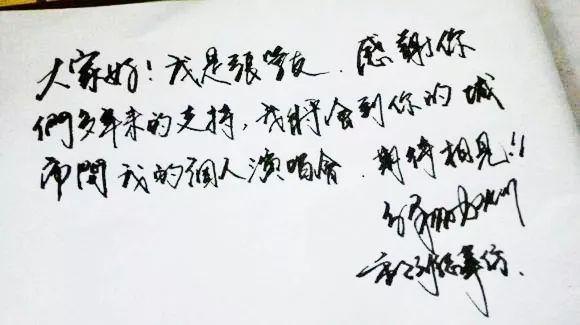 大家好！我是張學友．感謝你
們多年來的支持，我將會到你的城
市開我的個人演唱會．期待相見!!